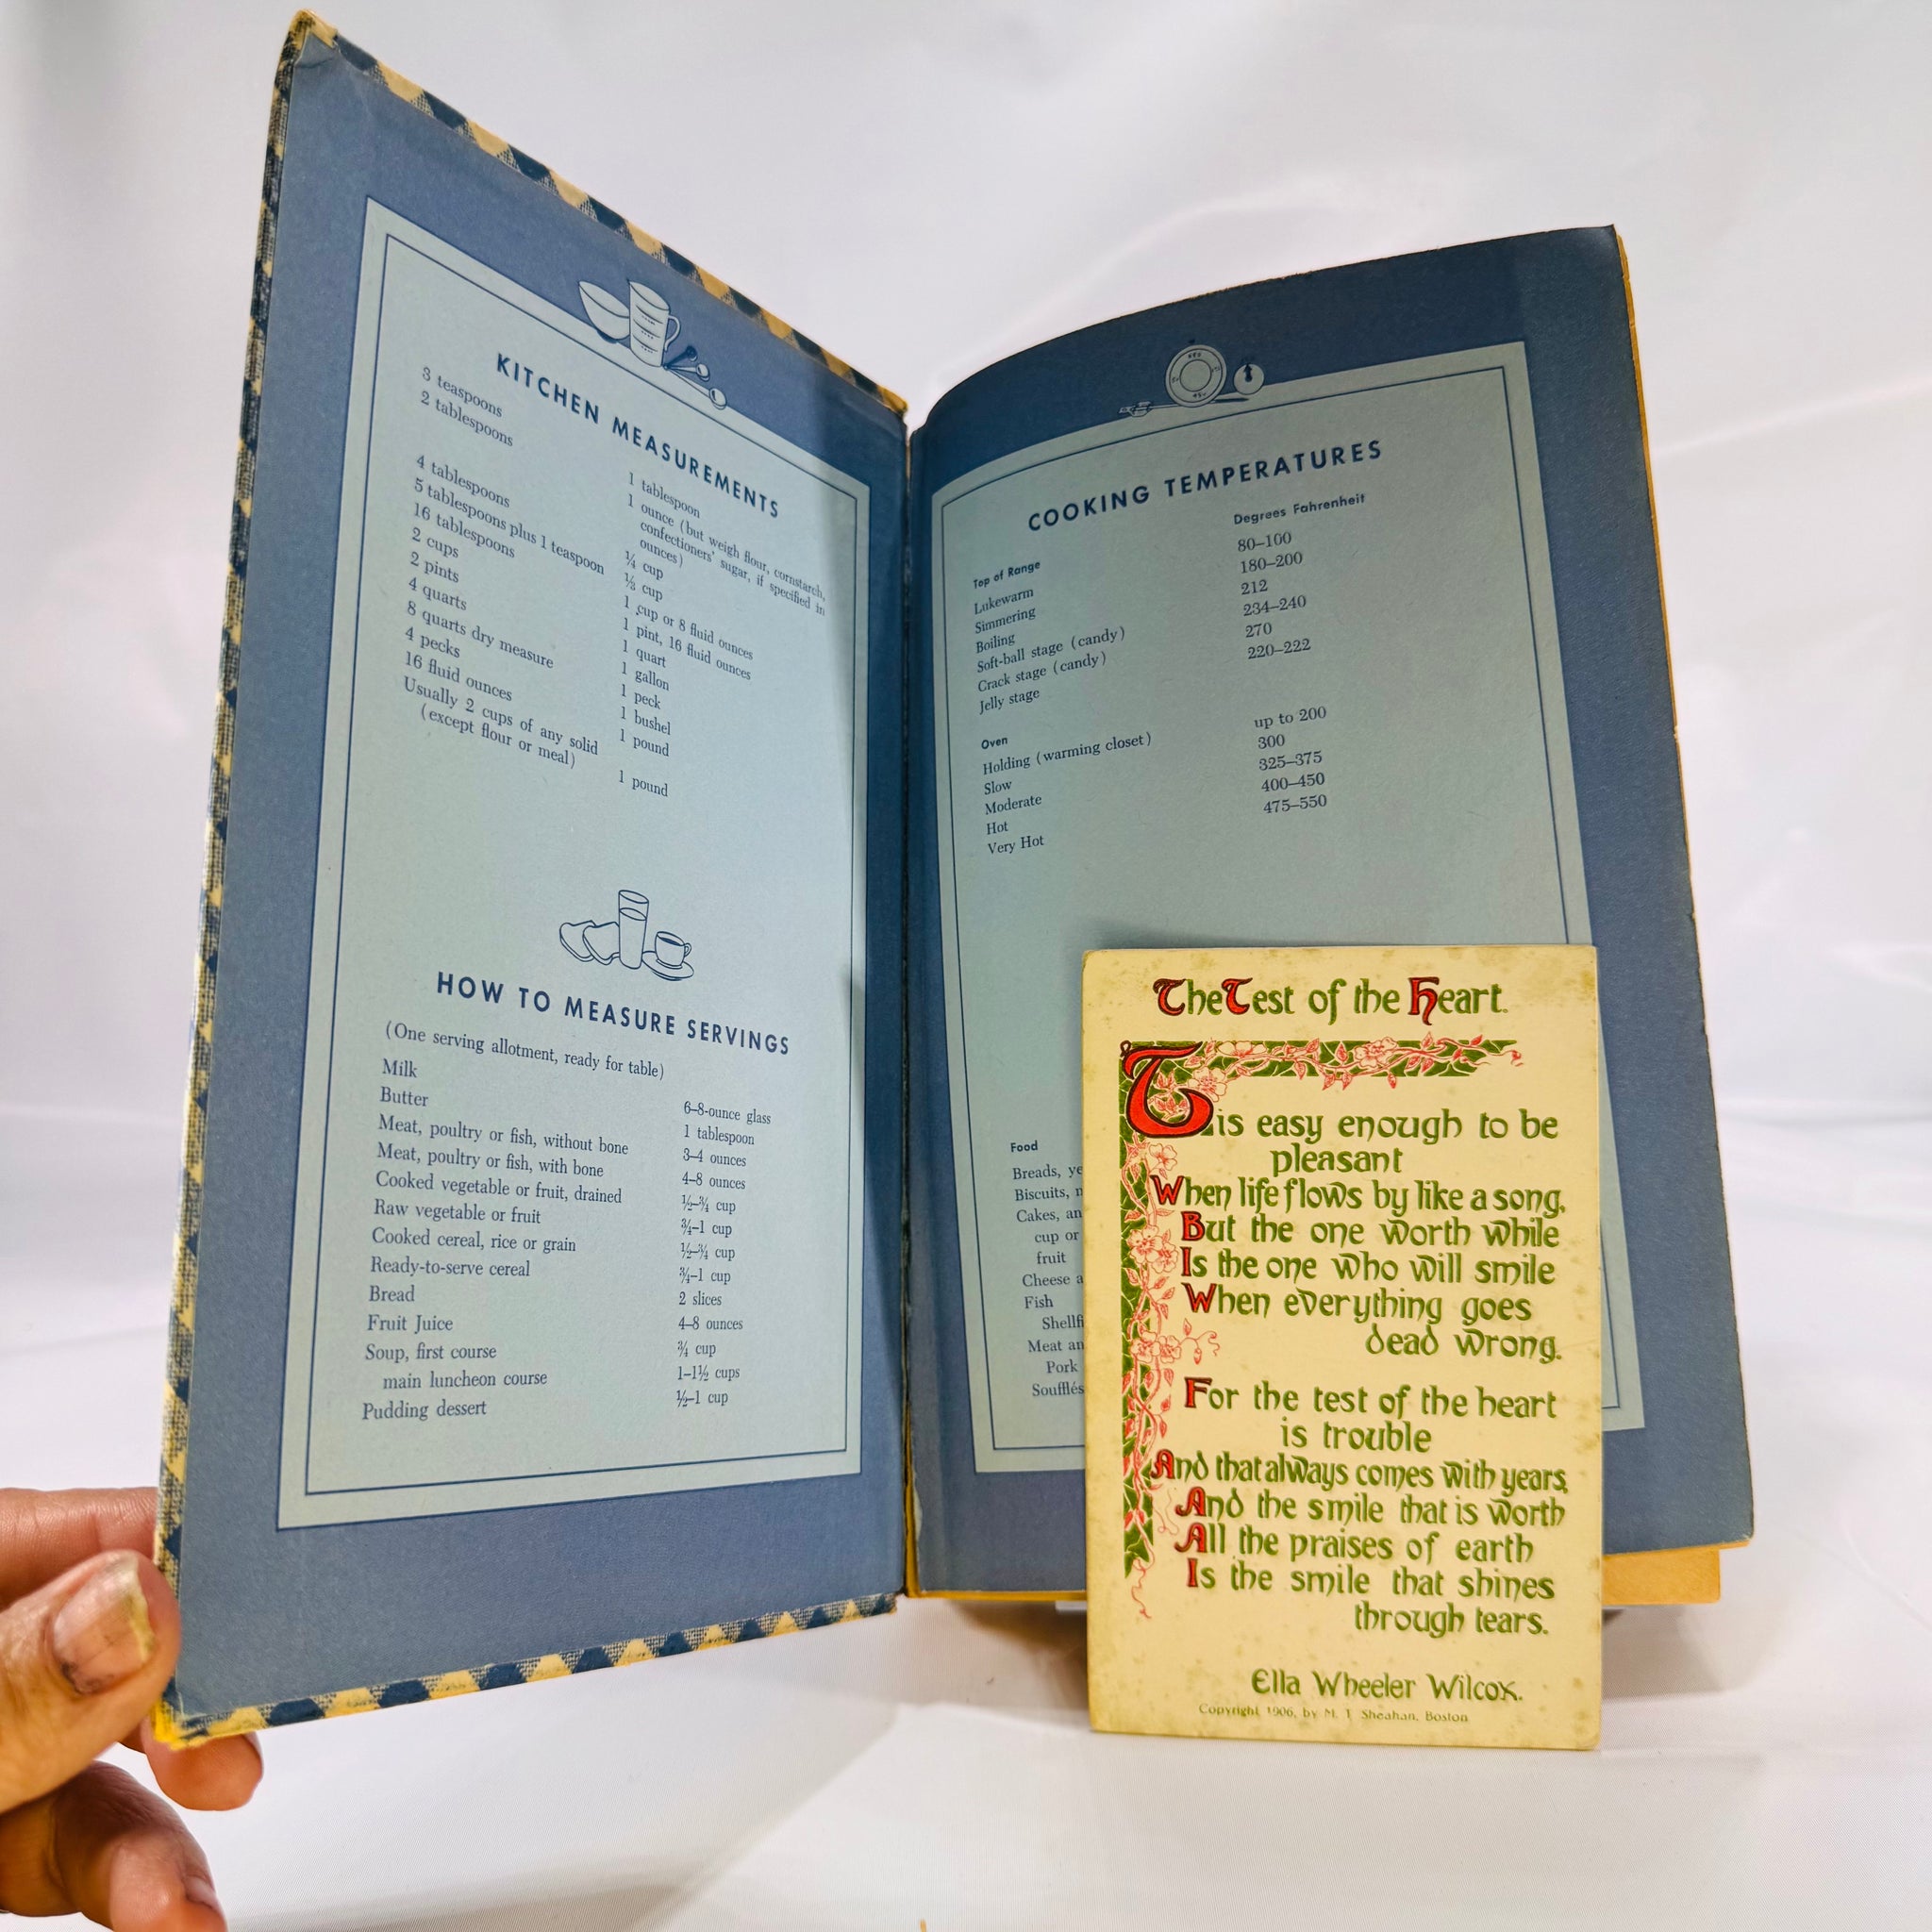 KITCHEN MEASUREMENTS
3 teaspoons 1 tablespoon
2 tablespoons 1 ounce (but weigh flour, cornstarch,
confectioners' sugar, if specified in
ounces)
4 tablespoons ¼ cup
5 tablespoons plus 1 teaspoon ⅓ cup
16 tablespoons 1 cup or 8 fluid ounces
2 cups 1 pint, 16 fluid ounces
2 pints 1 quart
4 quarts 1 gallon
8 quarts dry measure 1 peck
4 pecks 1 bushel
16 fluid ounces 1 pound
Usually 2 cups of any solid
(except flour or meal) 1 pound
HOW TO MEASURE SERVINGS
(One serving allotment, ready for table)
Milk 6–8-ounce glass
Butter 1 tablespoon
Meat, poultry or fish, without bone 3–4 ounces
Meat, poultry or fish, with bone 4–8 ounces
Cooked vegetable or fruit, drained ½–¾ cup
Raw vegetable or fruit ¾–1 cup
Cooked cereal, rice or grain ½–¾ cup
Ready-to-serve cereal ¾–1 cup
Bread 2 slices
Fruit Juice 4–8 ounces
Soup, first course ¾ cup
main luncheon course 1–1½ cups
Pudding dessert ½–1 cup
COOKING TEMPERATURES
Degrees Fahrenheit
Top of Range
Lukewarm 80–100
Simmering 180–200
Boiling 212
Soft-ball stage (candy) 234–240
Crack stage (candy) 270
Jelly stage 220–222
Oven
Holding (warming closet) up to 200
Slow 300
Moderate 325–375
Hot 400–450
Very Hot 475–550
Food
Breads, ye
Biscuits,
Cakes, an
cup or
fruit
Cheese a
Fish
Shellfi
Meat an
Pork
Soufflés
The Test of the Heart.
Tis easy enough to be
pleasant
When life flows by like a song,
But the one worth while
Is the one who will smile
When everything goes
dead wrong.
For the test of the heart
is trouble
And that always comes with years,
And the smile that is worth
All the praises of earth
Is the smile that shines
through tears.
Ella Wheeler Wilcox.
Copyright, 1906, by M. T. Sheahan, Boston